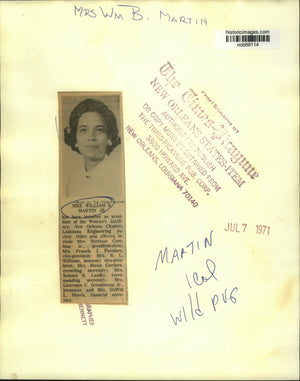 MRS WM B. MARTIN
historicimages.com
neb69114
PHOTOGRAPH BY
The Times-Picayune
NEW ORLEANS STATES-ITEM
AUTHORITY TO PUBLISH
OR COPY MUST BE OBTAINED FROM
THE TIMES-PICAYUNE PUB. CORP.
3800 HOWARD AVE.
NEW ORLEANS, LOUISIANA 70140
JUL 7 1971
MRS. WILLIAM B.
MARTIN JR.
has been installed as presi-
dent of the Woman's Auxil-
iary, New Orleans Chapter,
Louisiana Engineering So-
ciety. Other new officers in-
clude Mrs. Seymour
Jr., president-elect;
Mrs. Francis J.
vice-president; Mrs. R. L.
Williams, honorary vice-presi-
dent; Mrs. Blaise Carriere,
recording secretary; Mrs.
Samuel E. Landry, corre-
sponding secretary; Mrs.
Lawrence C. Jr.,
treasurer, and Mrs. DeWitt
L. Morris, financial secre-
tary.
MARTIN
1 col
W/d PUG